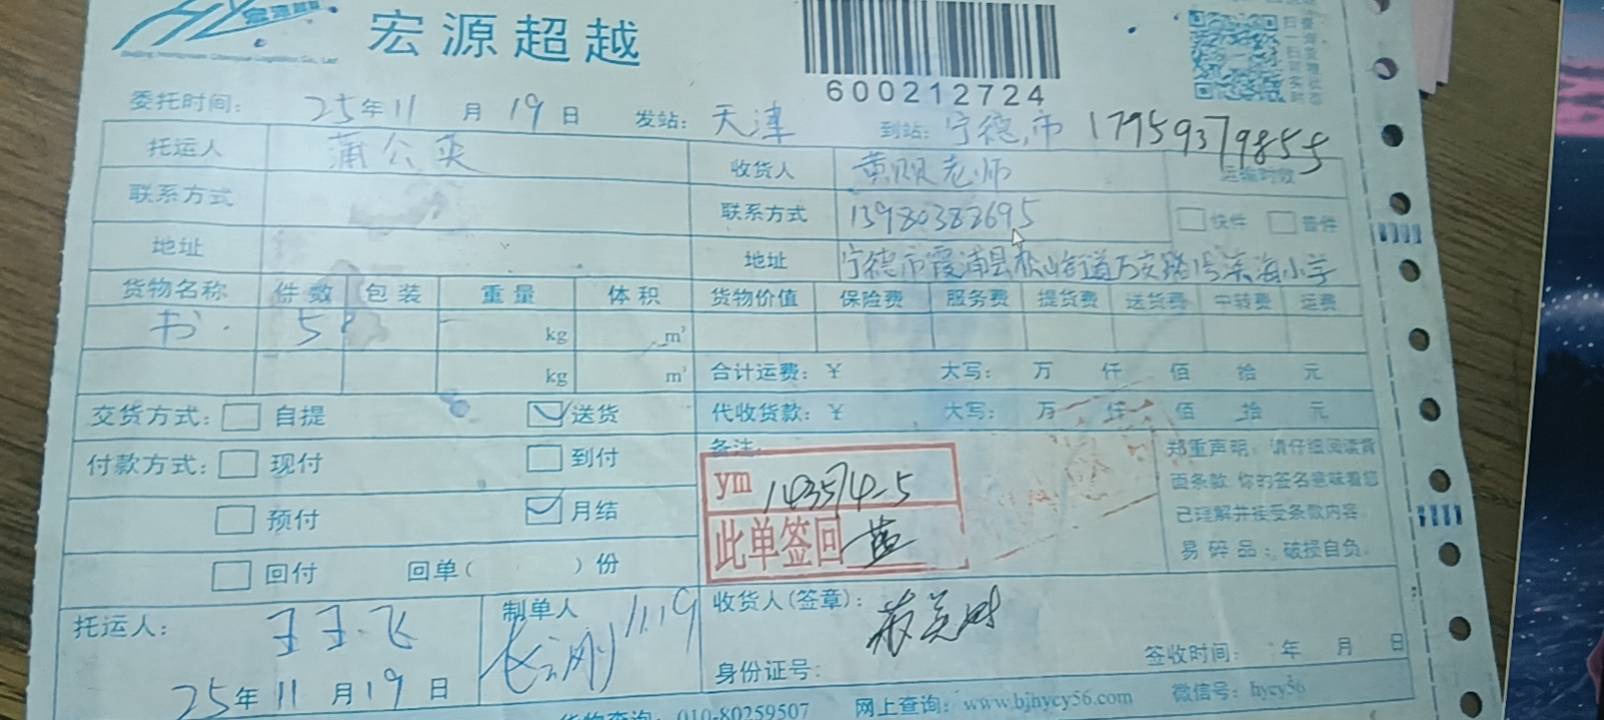 宏源超越
600212724
委托时间: 25年11月19日 发站: 天津 到站: 宁德市 17959379855
托运人 蒲公英 收货人 黄 老师 运输时效
联系方式 联系方式 13980382695 快件 普件
地址 地址 宁德市霞浦县松山街道万安路1号东海小学
货物名称 件数 包装 重量 体积 货物价值 保险费 服务费 提货费 送货费 中转费 运费
书 5 kg m³
kg m³ 合计运费: ¥ 大写: 万 仟 佰 拾 元
交货方式: 自提 送货 代收货款: ¥ 大写: 万 仟 佰 拾 元
付款方式: 现付 到付 备注:
预付 月结
回付 回单( )份
ym 143574-5
此单签回 蓝
郑重声明:请仔细阅读背
面条款 你的签名意味着您
已理解并接受条款内容
易碎品:破损自负.
托运人: 王玉飞 制单人 11.19 收货人(签章):
身份证号: 签收时间: 年 月 日
25年11月19日
货物查询: 010-80259507 网上查询: www.bjhycy56.com 微信号: hycy56